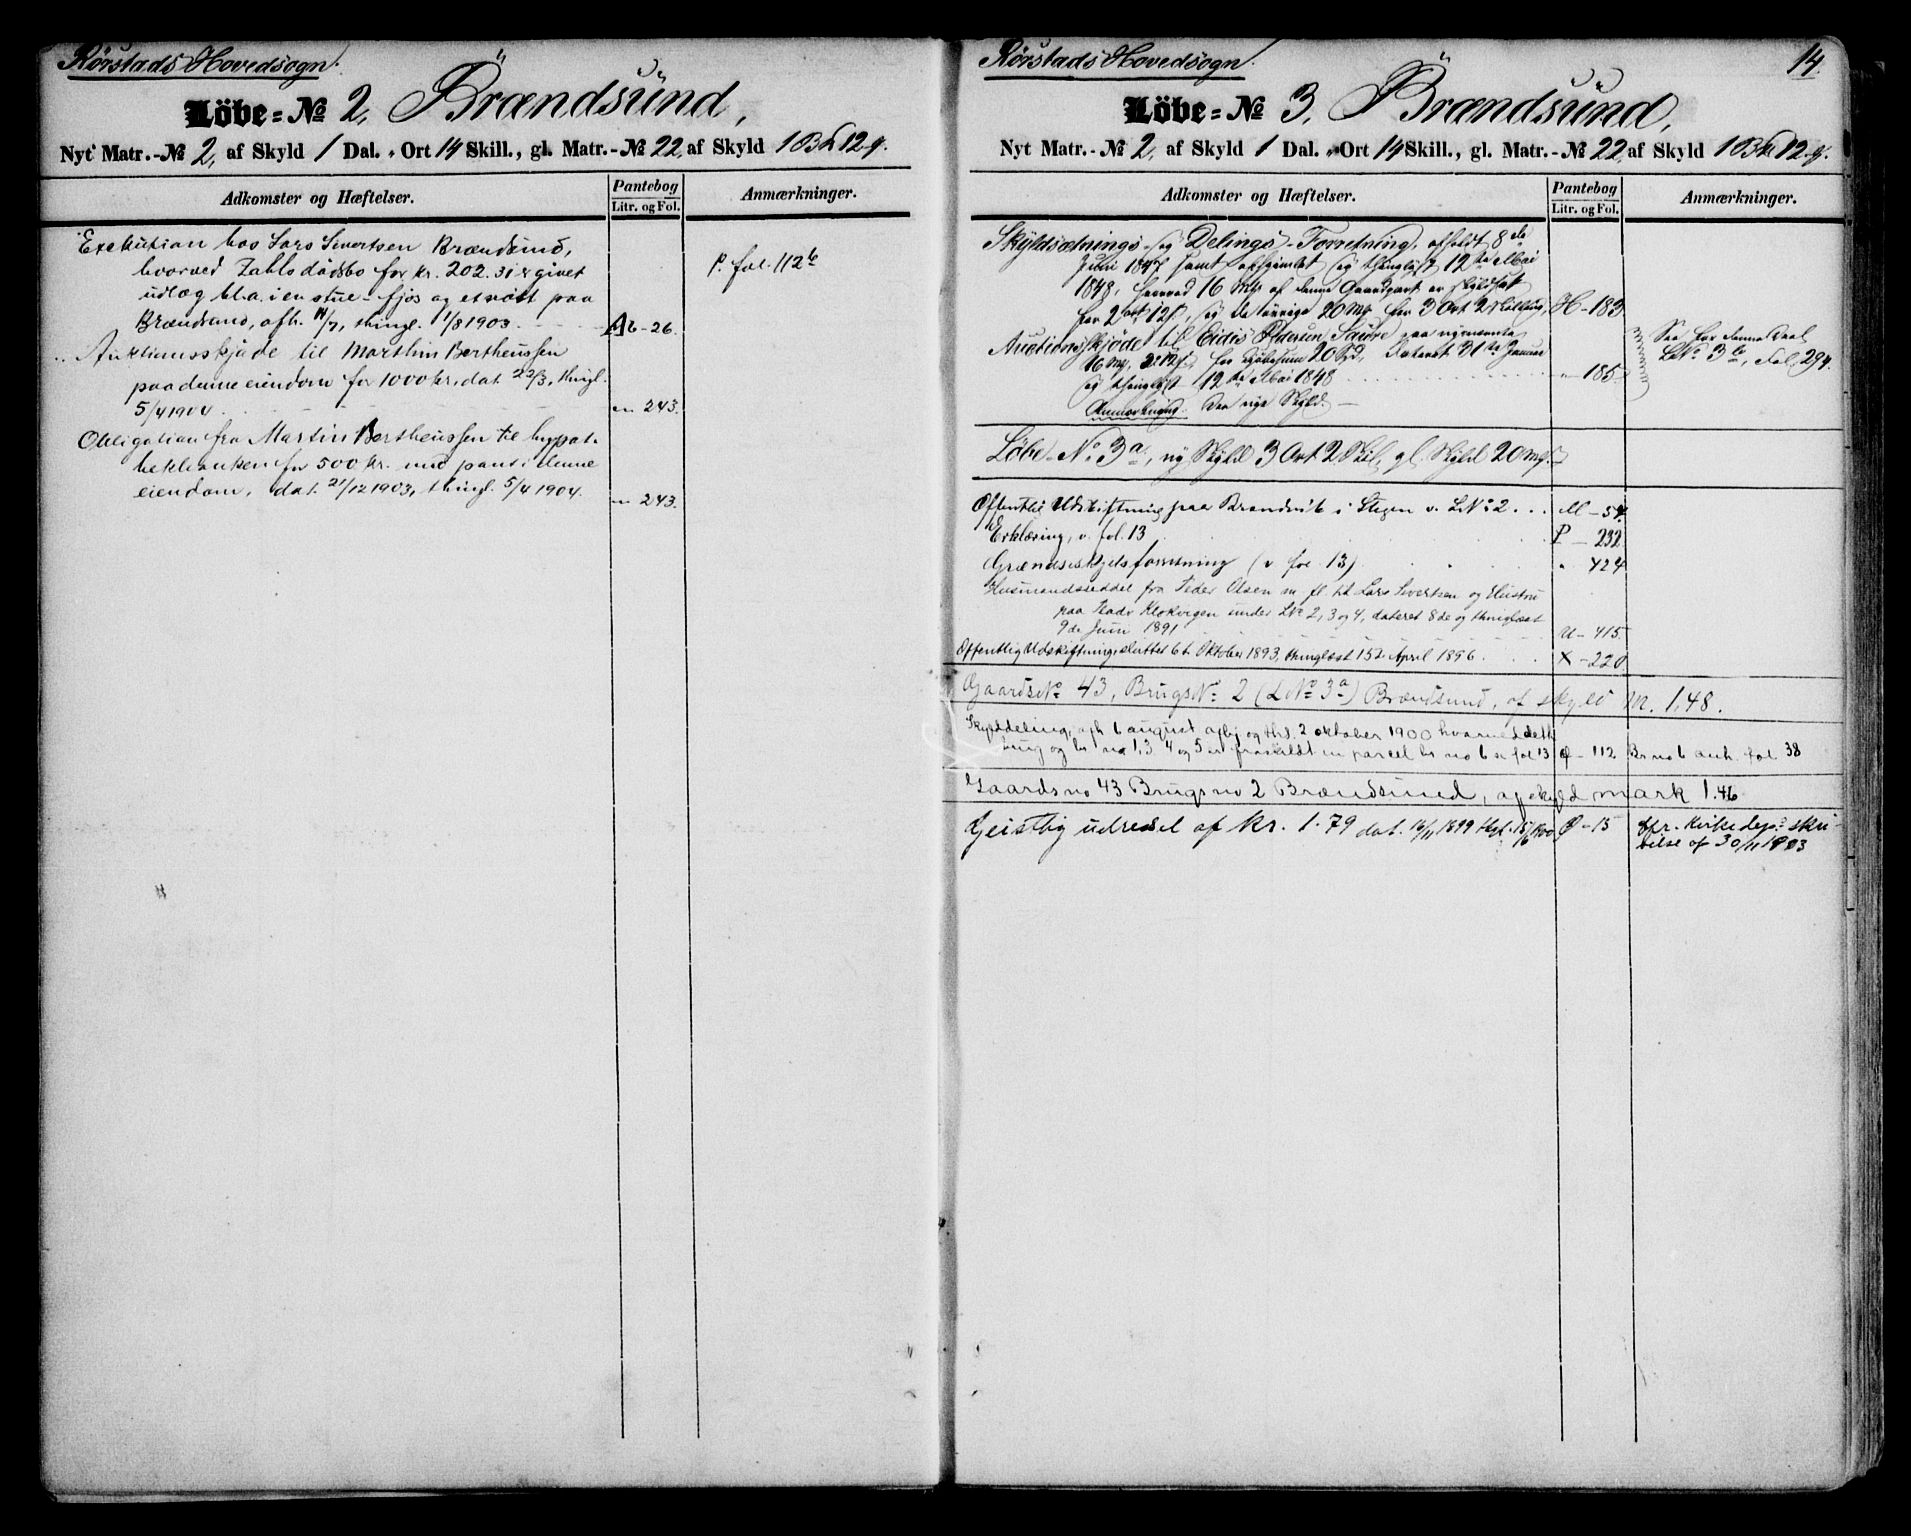 Rørstads Hovedsogn.
Löbe=No 2, Brændsund,
Nyt Matr.-No 2, af Skyld 1 Dal. " Ort 14 Skill., gl. Matr.-No 22, af Skyld 1 B 12
Adkomster og Hæftelser.
Pantebog
Litr. og Fol.
Anmærkninger.
Exekution hos Lars Sivertsen Brændsund,
hvorved Zahls dødsbo for kr. 202.31 er givet
udlæg bl.a. i en stue - fjøs og et nöst paa
Brændsund, afh. 14/7, thingl. 1/8 1903 Ab-26.
P. fol. 112b
Auktionsskjøde til Marthin Bertheussen
paa denne eiendom for 1000 kr. dat. 22/3, thingl.
5/4 1904 "-243.
Obligation fra Martin Bertheussen til hypot.
hekbanken for 500 kr. med pant i denne
eiendom, dat. 21/12 1903, thingl. 5/4 1904. "-243.
Rørstads Hovedsogn.
14.
Löbe=No 3, Brændsund,
Nyt Matr.-No 2, af Skyld 1 Dal. " Ort 14 Skill., gl. Matr.-No 22 af Skyld 1 B 12
Adkomster og Hæftelser.
Pantebog
Litr. og Fol.
Anmærkninger.
Skyldsætnings- og Delings-Forretning, afholdt 8de
Juni 1847 samt og thinglyst 12te Mai
1848, hvorved 16 Mk af denne Gaardpart er skyldsat
for 2 ort 12 s, og de øvrige 20 Mk for 3 Ort 2 H-183
Auctionsskjøde til Eidis Pedersen paa ovennævnte
16 Mk, 2 12 s, for kjøbesum 20 Spd, Dateret 31te Januar
og thinglyst 12te Mai 1848 "-185
Anmærkning. Se nye Skyld.
See for denne Deel
LNo 3b, Fol. 294.
Løbe-No 3a, ny Skyld 3 Ort 2 Skil., gl. Skyld 20 Mk.
Offentlig Udskiftning paa Brandvik i Stegen v. LNo 2 M-54.
Erklæring, v. fol. 13 P-232
Grændseskjelsforretning (v fol. 13) " 424
Husmandsseddel fra Peder Olsen m fl. til Lars Sivertsen og Hustru
paa Klokvigen under LNo 2, 3 og 4, dateret 8de og thinglæst
9de Juni 1891 U-415.
Offentlig Udskiftning, sluttet 6t Oktober 1893, thinglæst 15de April 1896. X-220
GaardsNo 43, BrugsNo 2 (LNo 3a) Brændsund, af skyld M. 1,48.
Skylddeling, afh 6 august, afhj og thl. 2 oktober 1900 hvorved dette
brug og br no 1, 3, 4 og 5 er fraskildt en parcel br no 6 se fol 13 Ø-112 Br no 6 anh. fol 38
Gaardsno 43 Brugsno 2 Brændsund, af skyld mark 1.46
Geistlig udredsel af kr. 1.79 dat. 16/11 1899 thgl. 15/6 1900 Ø-15
cfr. Kirkedep. skri-
velse af 30/11 1903